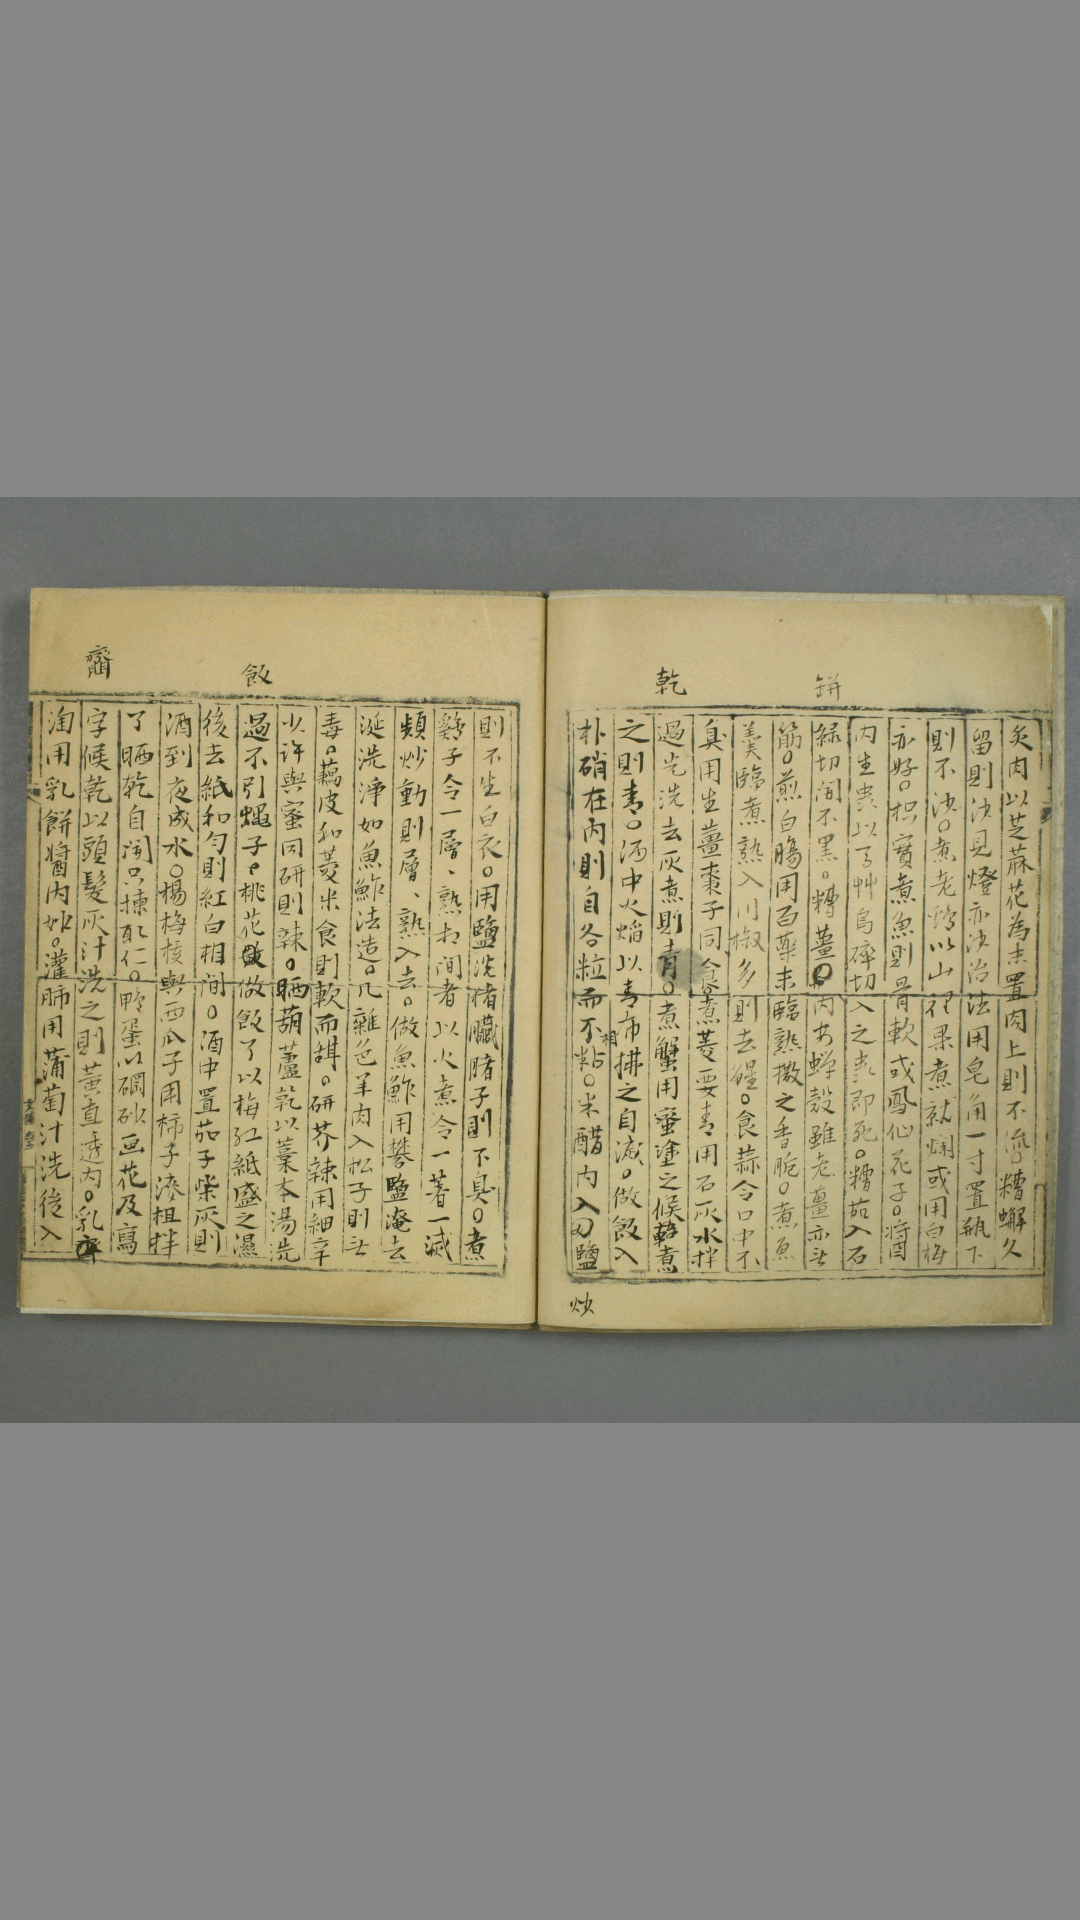 餅
乾
炙肉以芝蔴花為末置肉上則不流○糟蟹久
留則沙見燈亦沙治法用皂角一寸置瓶下
則不沙○煮老鷄以山裡果煮就爛或用白梅
亦好○枳實煮魚則骨軟或鳳仙花子○將酉
內生虫以 艸烏碎切入之虫即死○糟茄入石
綠切開不黑○糟薑○內安蟬殼雖老薑亦無
筋○煎白腸用百藥末臨熟撒之香脆○煮魚
羹臨煮熟入川椒多則去腥○食蒜令口中不
臭用生薑棗子同食○煮菱要青用石灰水拌
過先洗去灰煮則青○煮蟹用蜜塗之候乾煮
之則青○酒中火焰以青布拂之自滅○做飯入
朴硝在內則自各粒而不相粘○米醋內入炒鹽
炒
飯
齏
則不生白衣○用鹽洗猪臟膳子則不臭○煮
鷄子令一層、熟相間者以火煮令一著一滅
頻炒動則層、熟入去○做魚鮓用礬鹽淹去
涎洗淨如魚鮓法造○凡雜色羊肉入松子則無
毒○藕皮和菱米食則軟而甜○研芥辣用細辛
少許與蜜同研則辣○晒葫蘆乾以藁本湯洗
過不引蠅子○桃花 做飯了以梅紅紙盛之濕
後去紙和勻則紅白相間○酒中置茄子柴灰則
酒到夜成水○楊梅核與西瓜子用柿子漆相拌
了晒乾自開只揀取仁○鴨蛋以碙砂画花及寫
字候乾以頭髮灰汁洗之則黃直透內○乳齏
淘用乳餅醬內妙○灌肺用蒲萄汁洗後入